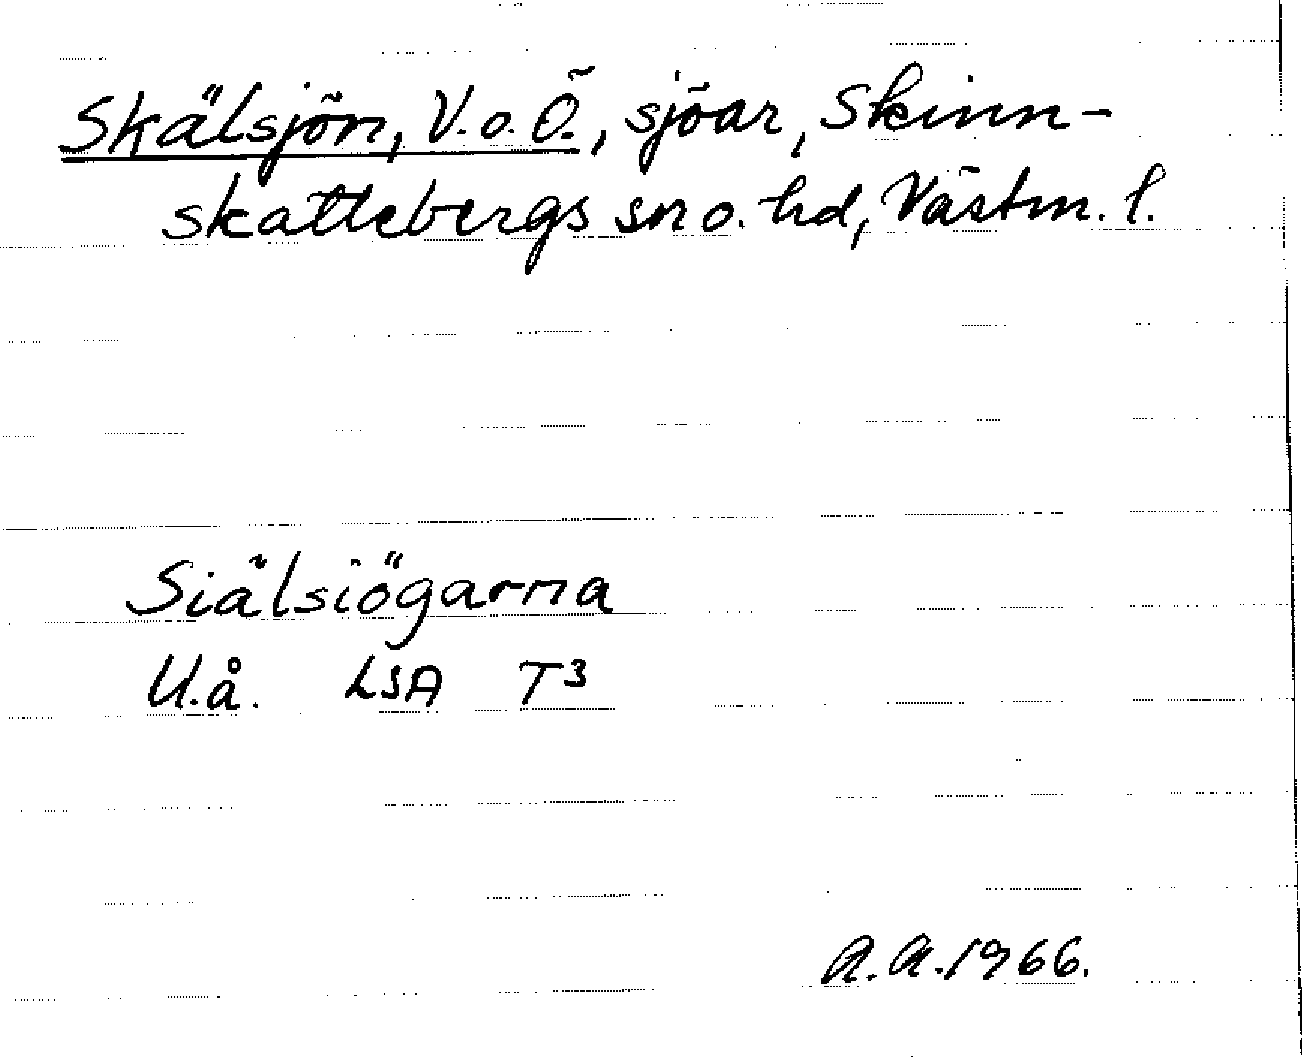 Skälsjön, V. o. Ö., sjöar, Skinn-
skattebergs sn o. hd, Västm. l.
Siälsiögarna
U.å. LSA T3
A.A. 1966.